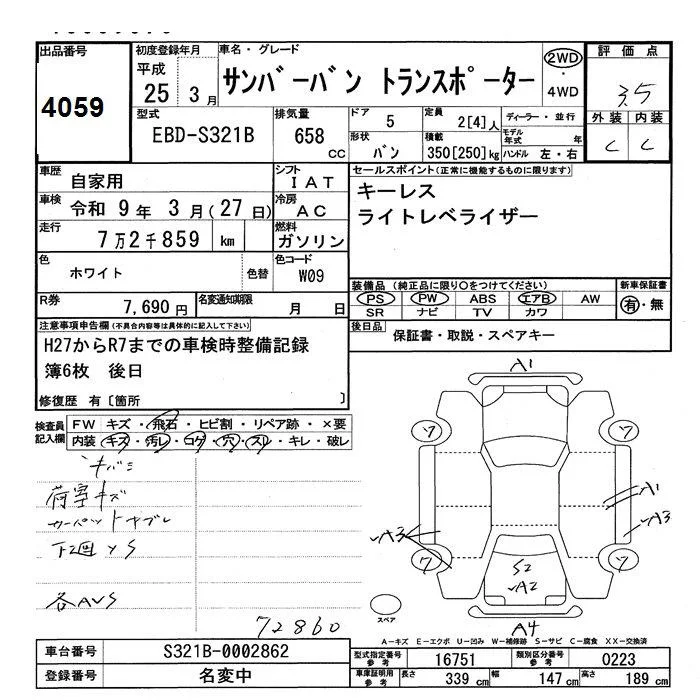 出品番号
4059
初度登録年月
平成
25 3 月
車名・グレード
サンバーバン トランスポーター
2WD
・
4WD
評価点
3.5
外装 内装
C C
型式
EBD-S321B
排気量
658
CC
ドア 5
形状 バン
定員 2[4]人
積載 350[250]kg
ディーラー・並行
モデル年式 年
ハンドル 左・右
車歴 自家用
シフト IAT
車検 令和 9年 3月(27日)
冷房 AC
走行 7万2千859 km
燃料 ガソリン
色 ホワイト 色替
色コード W09
R券 7,690円
名変通知期限 月 日
セールスポイント(正常に機能するものに限ります)
キーレス
ライトレベライザー
装備品 (純正品に限り○をつけてください)
PS PW ABS エアB AW
SR ナビ TV カワ
新車保証書
有・無
後日品 保証書・取説・スペアキー
注意事項申告欄(不具合内容等は具体的に記入して下さい)
H27からR7までの車検時整備記録
簿6枚 後日
修復歴 有〔箇所 〕
検査員記入欄
FW キズ・飛石・ヒビ割・リペア跡・×要
内装 キズ・汚レ・コゲ・穴・スレ・キレ・破レ
キバミ
荷室キズ
カーペット
下2回 S
各AUS
72860
A1
ワ ワ
A1
A3
A3
ワ ワ
S2
A2
A4
スペア
A-キズ E-エクボ U-凹み W-補修跡 S-サビ C-腐食 XX-交換済
車台番号 S321B-0002862
登録番号 名変中
型式指定番号参考 16751
類別区分番号参考 0223
車庫証明用参考 長さ 339cm 幅 147cm 高さ 189cm